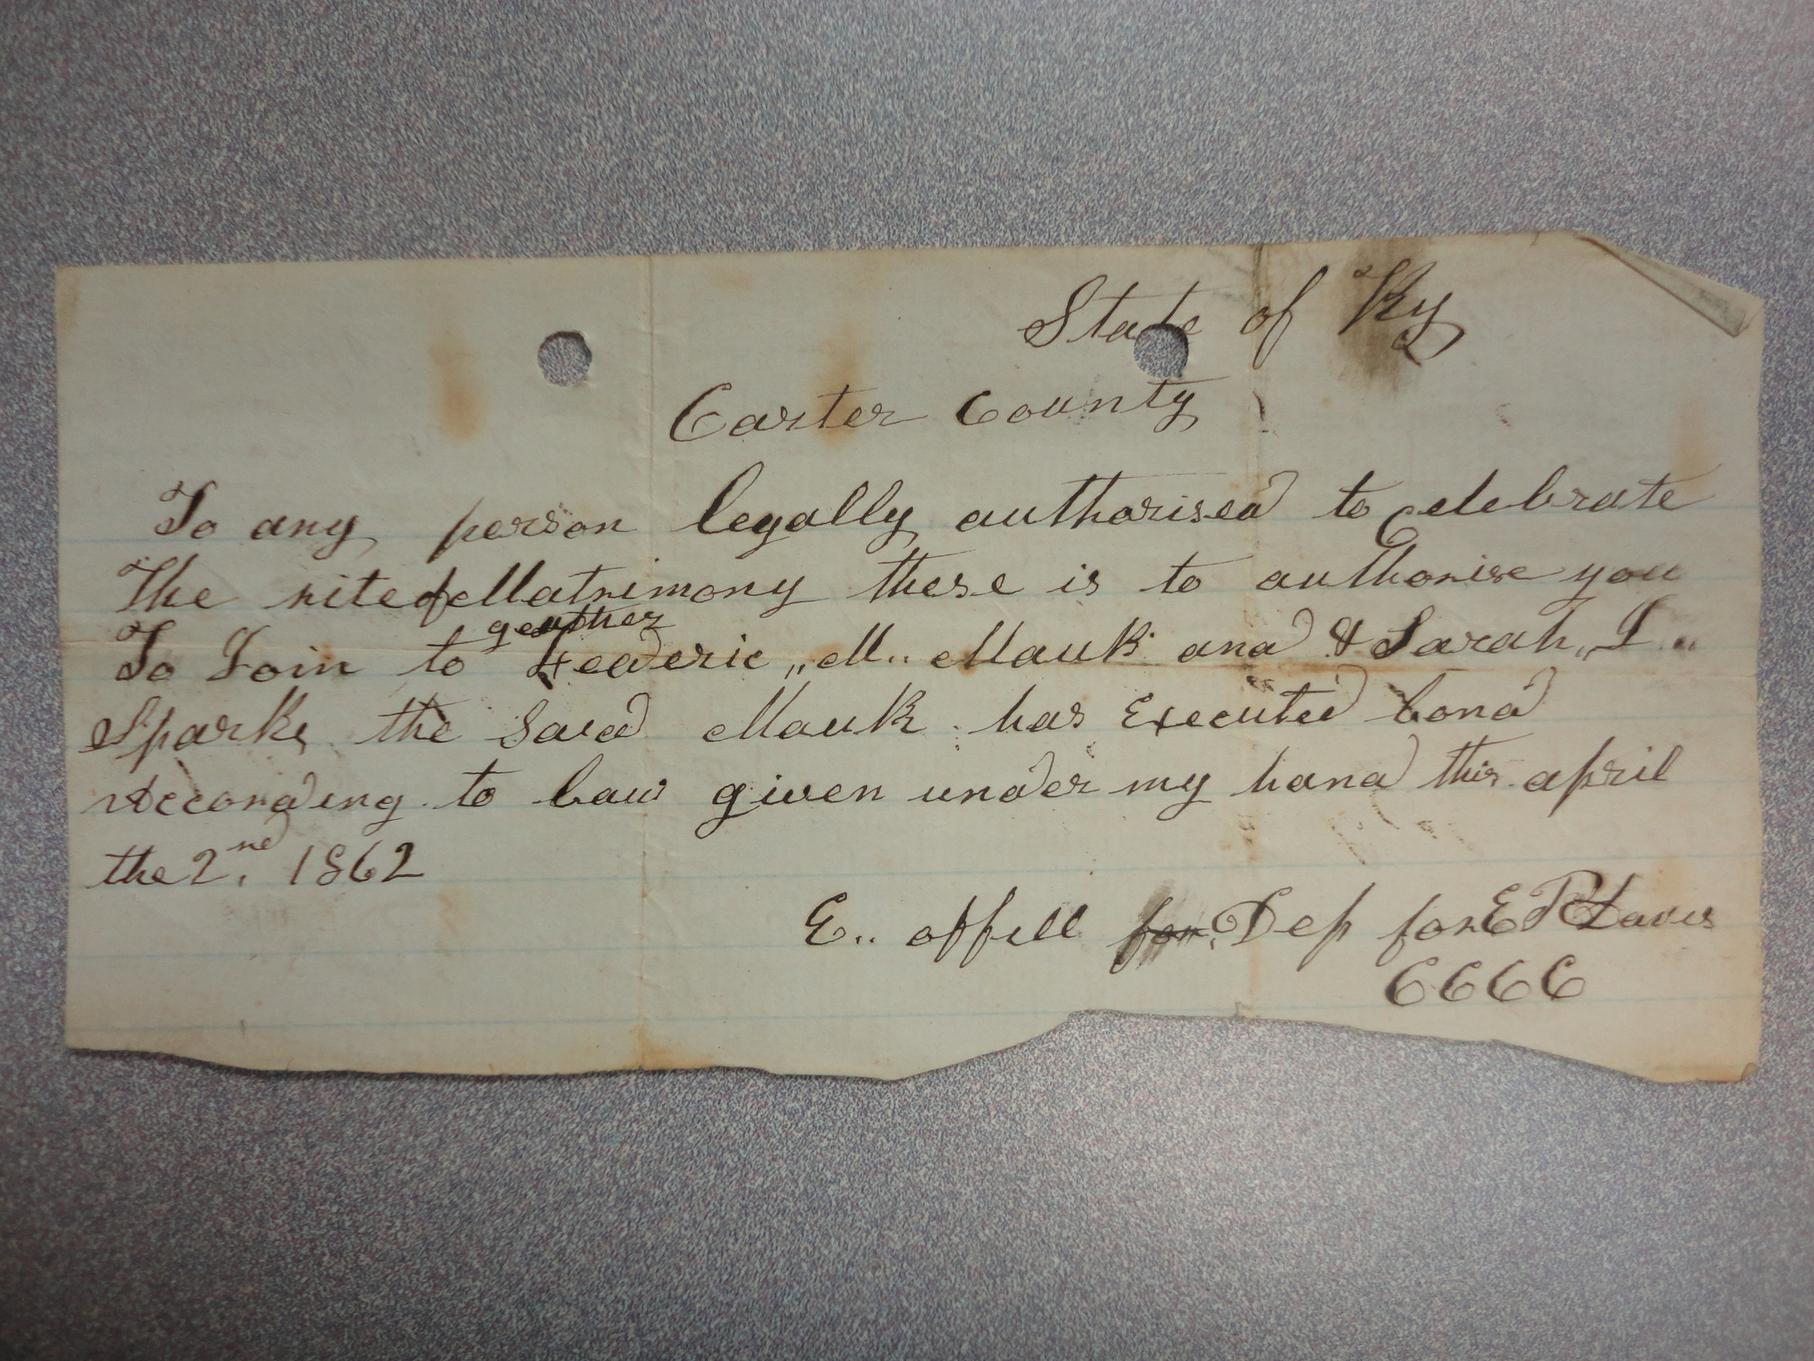 State of Ky
Carter County
To any person legally authorised to Celebrate
The rite of Matrimony these is to authorise you
geather
To Join to Feaderic „ M.. Mauk and & Sarah „ J..
Sparks the Said Mauk has Executed bond
According to law given under my hand this april
the 2nd. 1862
E.. offill for Dep for E P Davis
CCCC